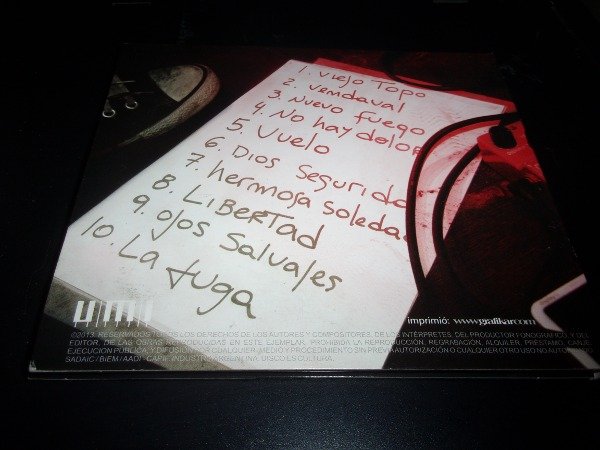 1. Viejo Topo
2. vendaval
3. Nuevo fuego
4. No hay dolor
5. Vuelo
6. Dios Seguridad
7. hermosa soledad
8. LiBERTad
9. ojos Salvajes
10. La fuga
UMI
imprimió: www.grafikar.com
©2013. RESERVADOS TODOS LOS DERECHOS DE LOS AUTORES Y COMPOSITORES, DE LOS INTERPRETES, DEL PRODUCTOR FONOGRAFICO, Y DEL
EDITOR, DE LAS OBRAS REPRODUCIDAS EN ESTE EJEMPLAR. PROHIBIDA LA REPRODUCCION, REGRABACION, ALQUILER, PRESTAMO, CANJE
EJECUCION PUBLICA, Y DIFUSION POR CUALQUIER MEDIO Y PROCEDIMIENTO SIN PREVIA AUTORIZACION O CUALQUIER OTRO USO NO
SADAIC / BIEM / AADI - CAPIF. INDUSTRIA ARGENTINA. DISCO ES CULTURA.